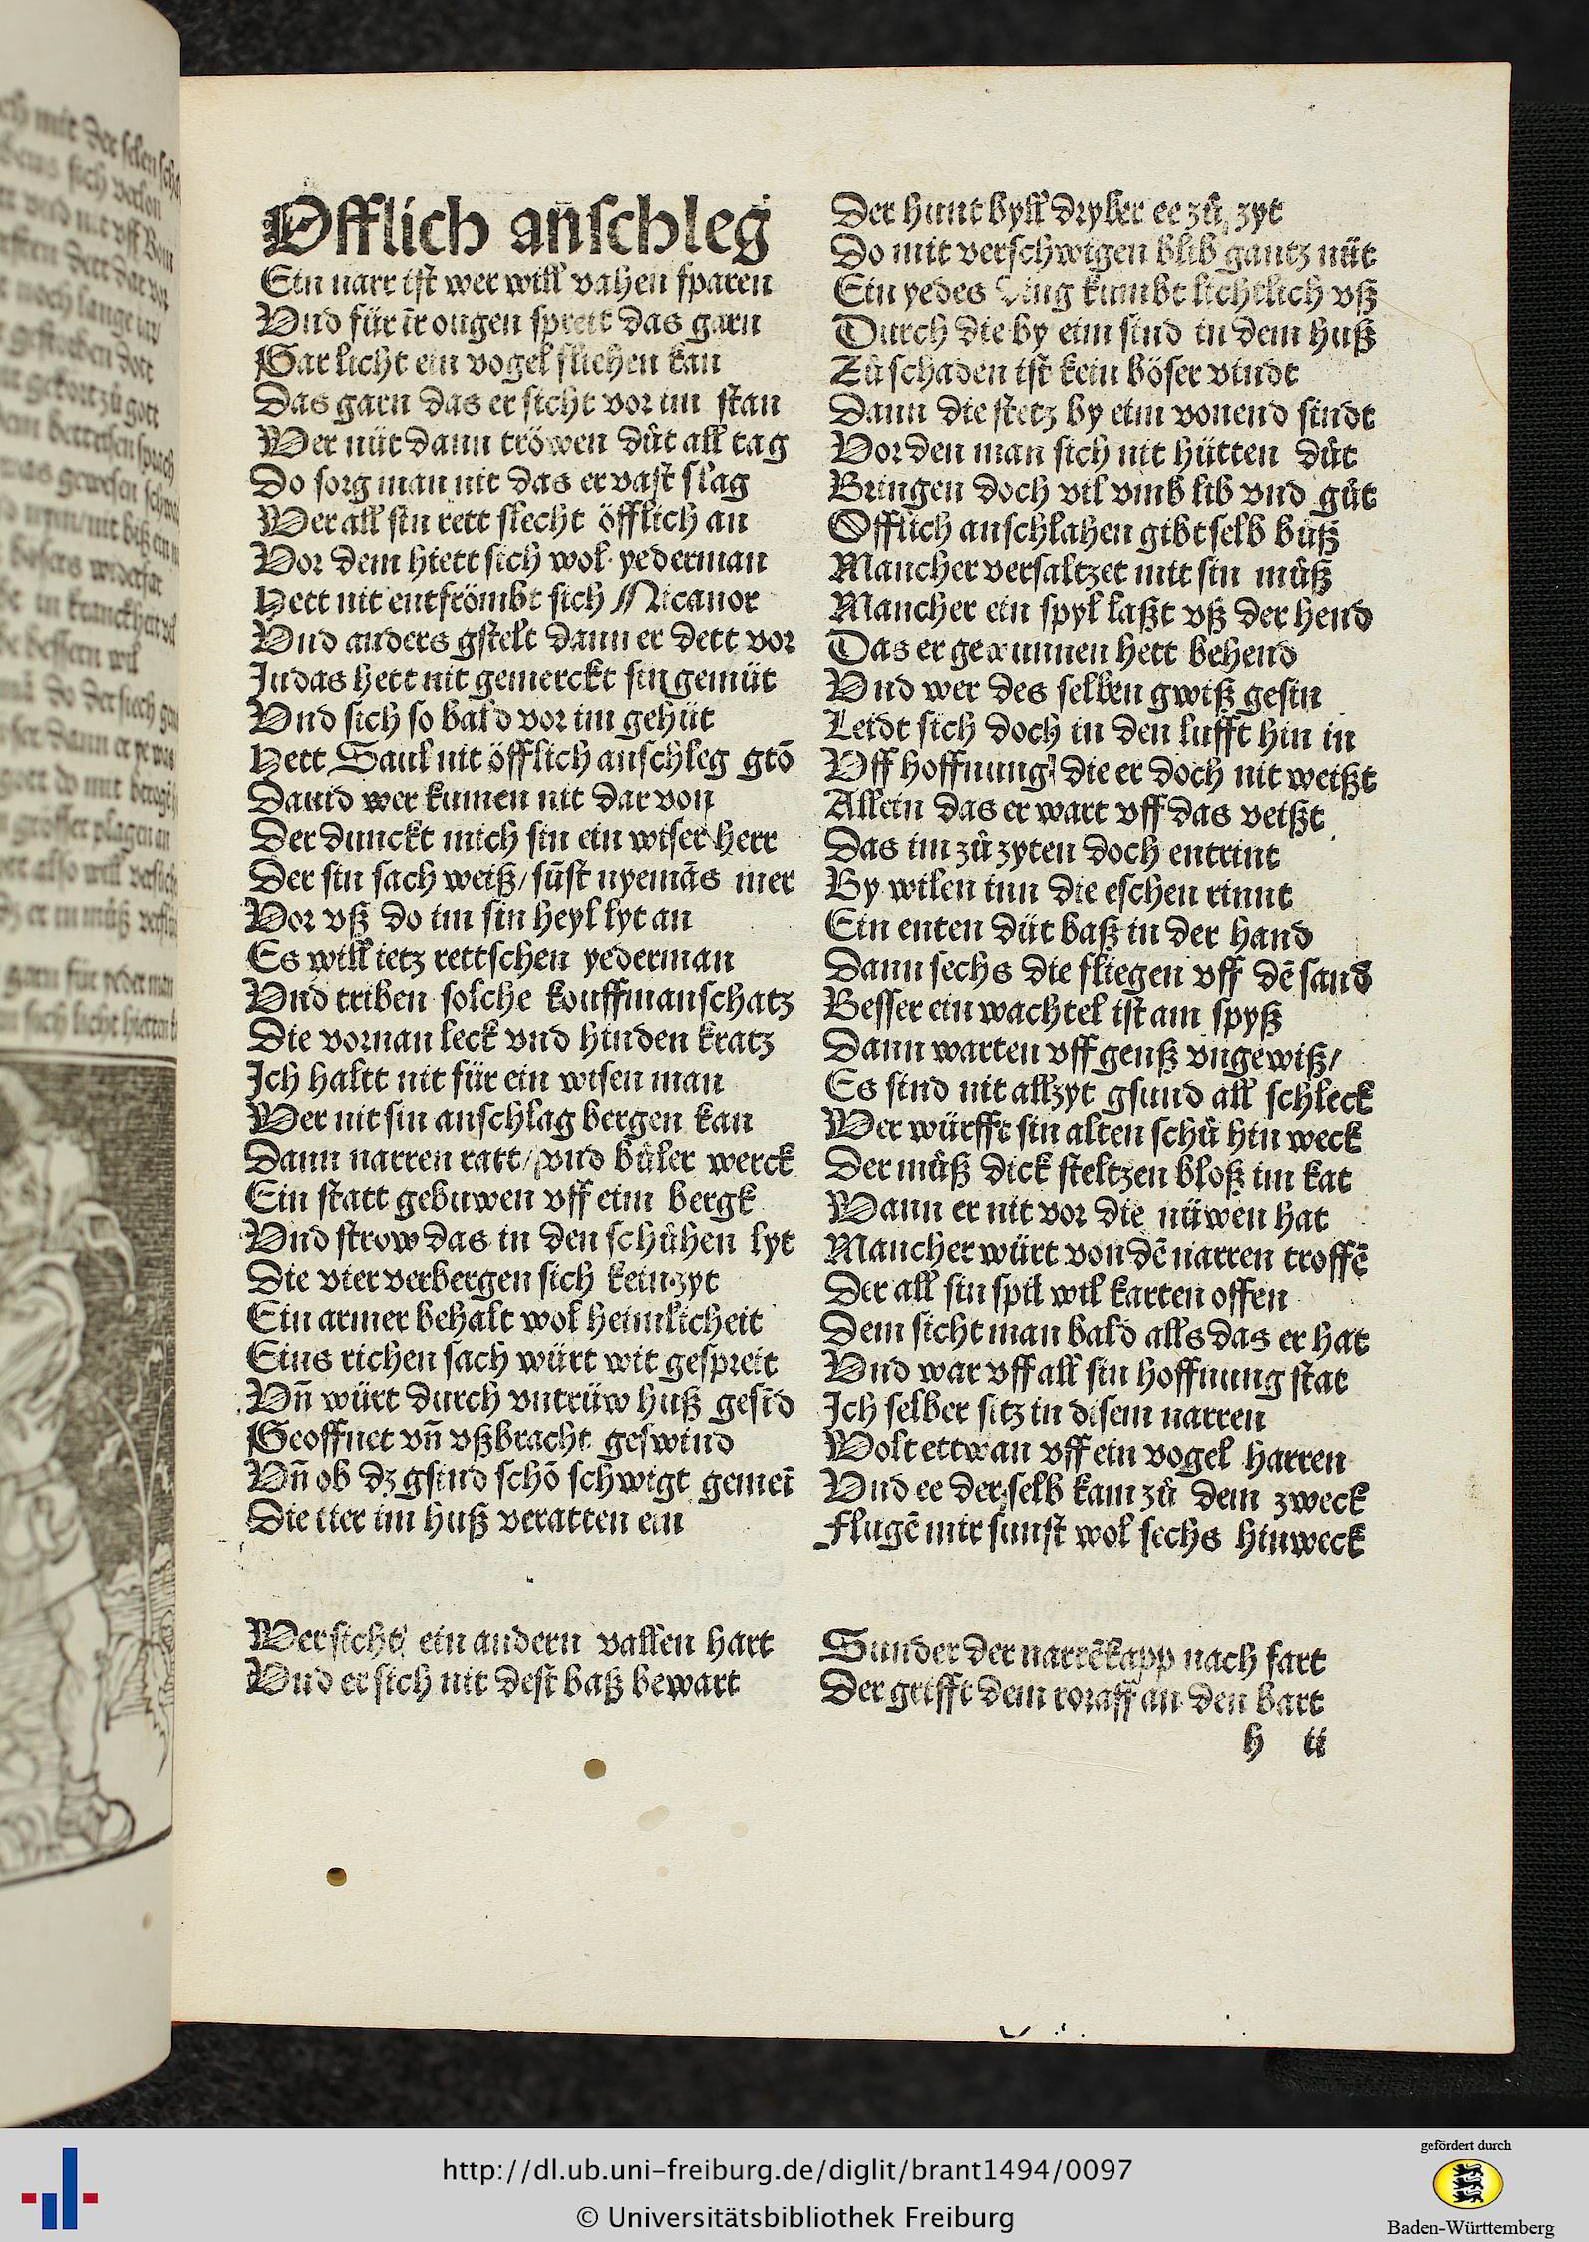 Offlich anschleg
Ein narr ist wer will vahen sparen
Vnd für ir̄ ougen spreit das garn
Gar licht ein vogel fliehen kan
Das garn das er sicht vor im stan
Wer nüt dann tröwen důt all tag
Do sorg man nit das er vast slag
Wer all sin rett slecht öfflich an
Vor dem hiett sich wol yederman
Hett nit entfrömbt sich Nicanor
Vnd anders gstelt dann er dett vor
Judas hett nit gemerckt sin gemüt
Vnd sich so bald vor im gehüt
Hett Saul nit öfflich anschleg gtō
Dauid wer kumen nit dar von
Der dunckt mich sin ein wiser herr
Der sin sach weiß / sūst nyemās mer
Vor vß do im sin heyl lyt an
Es will ietz rettschen yederman
Vnd triben solche kouffmanschatz
Die vornan leck vnd hinden kratz
Ich haltt nit für ein wisen man
Wer nit sin anschlag bergen kan
Dann narren ratt / vnd bůler werck
Ein statt gebuwen vff eim bergk
Vnd strow das in den schůhen lyt
Die vier verbergen sich kein zyt
Ein armer behalt wol heimlicheit
Eins richen sach würt wit gespreit
Vn̄ würt durch vntrüw huß gesīd
Geoffnet vn̄ vßbracht geswind
Vn̄ ob dz gsind schō schwigt gemeī
Die tier im huß veratten ein
Wer sicht ein andern vallen hart
Vnd er sich nit dest baß bewart
Der hunt byll dryber ee zů zyt
Do mit verschwigen blib gantz nüt
Ein yedes ding kumbt lichtlich vß
Durch die by eim sind in dem huß
Zů schaden ist kein böser vindt
Dann die stetz by eim wonend sindt
Vor den man sich nit hütten důt
Bringen doch vil vmb lib vnd gůt
Offlich anschlahen gibt selb bůß
Mancher versaltzet mit sin můß
Mancher ein spyl laßt vß der hend
Das er gewunnen hett behend
Vnd wer des selben gwiß gesin
Leidt sich doch in den lufft hin in
Vff hoffnung / die er doch nit weißt
Allein das er wart vff das veißt
Das im zů zyten doch entrint
By wilen inn die eschen rinnt
Ein enten düt baß in der hand
Dann sechs die fliegen vff dē sand
Besser ein wachtel ist am spyß
Dann warten vff genß vngewiß /
Es sind nit allzyt gsund all schleck
Wer würfft sin alten schů hin weck
Der můß dick steltzen bloß im kat
Wann er nit vor die nüwen hat
Mancher würt von dē narren troffē
Der all sin spil wil karten offen
Dem sicht man bald alls das er hat
Vnd war vff all sin hoffnung stat
Ich selber sitz in disem narren
Wolt ettwan vff ein vogel harren
Vnd ee der selb kam zů dem zweck
Flugē mir sunst wol sechs hinweck
Sunder der narrēkapp nach fart
Der grifft dem roraff an den bart
h ii
http://dl.ub.uni-freiburg.de/diglit/brant1494/0097
© Universitätsbibliothek Freiburg
gefördert durch
Baden-Württemberg